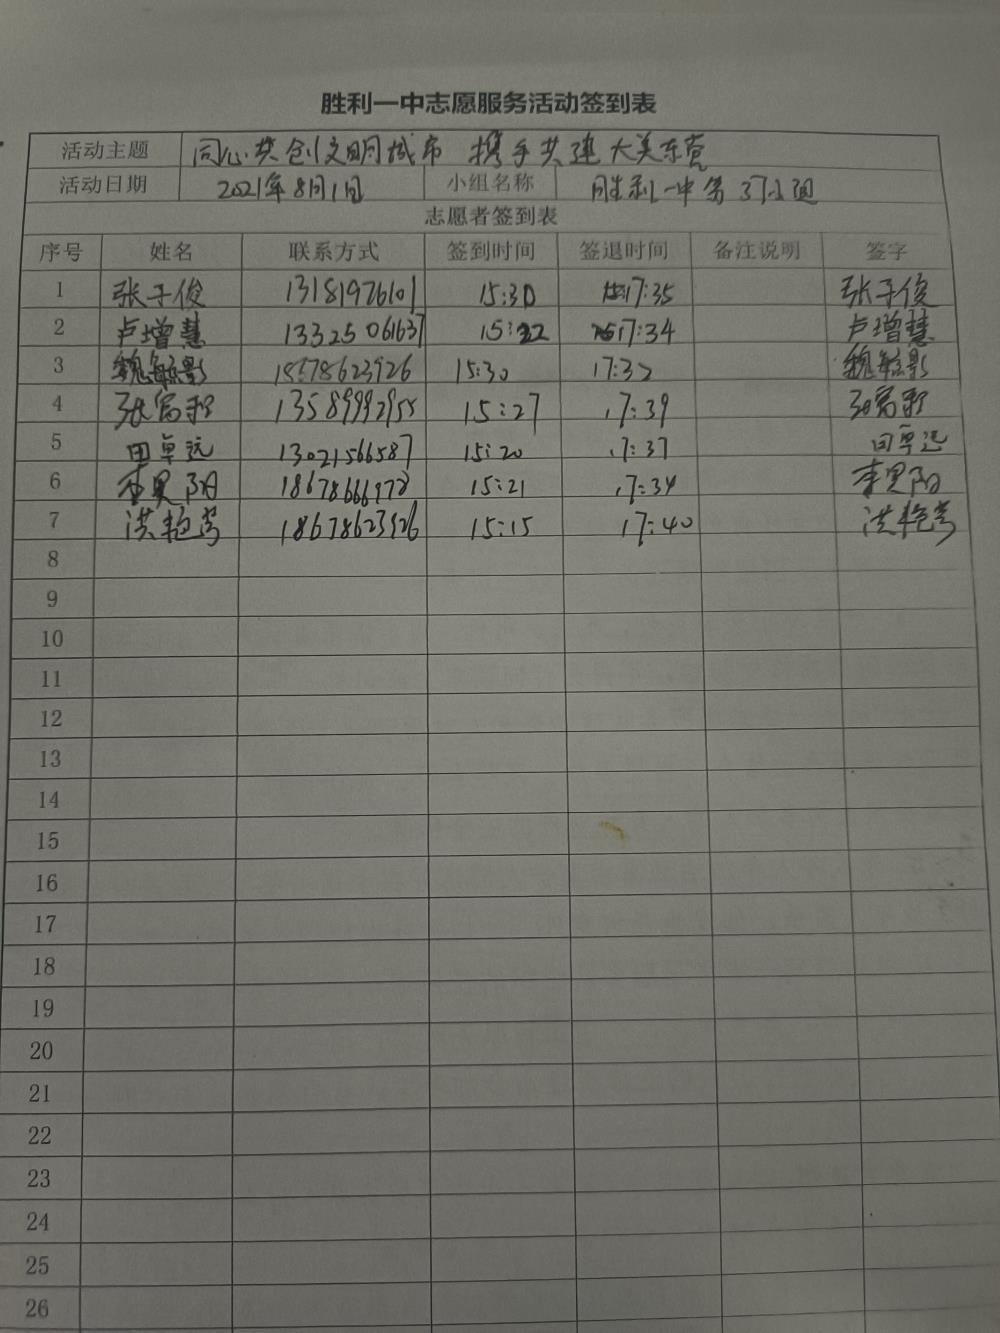 胜利一中志愿服务活动签到表
活动主题 同心共创文明城市 携手共建大美东营
活动日期 2021年8月1日 小组名称 胜利一中第37小组
志愿者签到表
序号 姓名 联系方式 签到时间 签退时间 备注说明 签字
1 张子俊 13181976101 15:30 17:35 张子俊
2 卢增慧 13325061637 15:22 17:34 卢增慧
3 魏毓影 18678623926 15:30 17:32 魏毓影
4 13589992955 15:27 17:39
5 田卓远 13021566587 15:20 17:37 田卓远
6 李昊阳 18678666978 15:21 17:34 李昊阳
7 洪艳 18678623926 15:15 17:40 洪艳
8
9
10
11
12
13
14
15
16
17
18
19
20
21
22
23
24
25
26